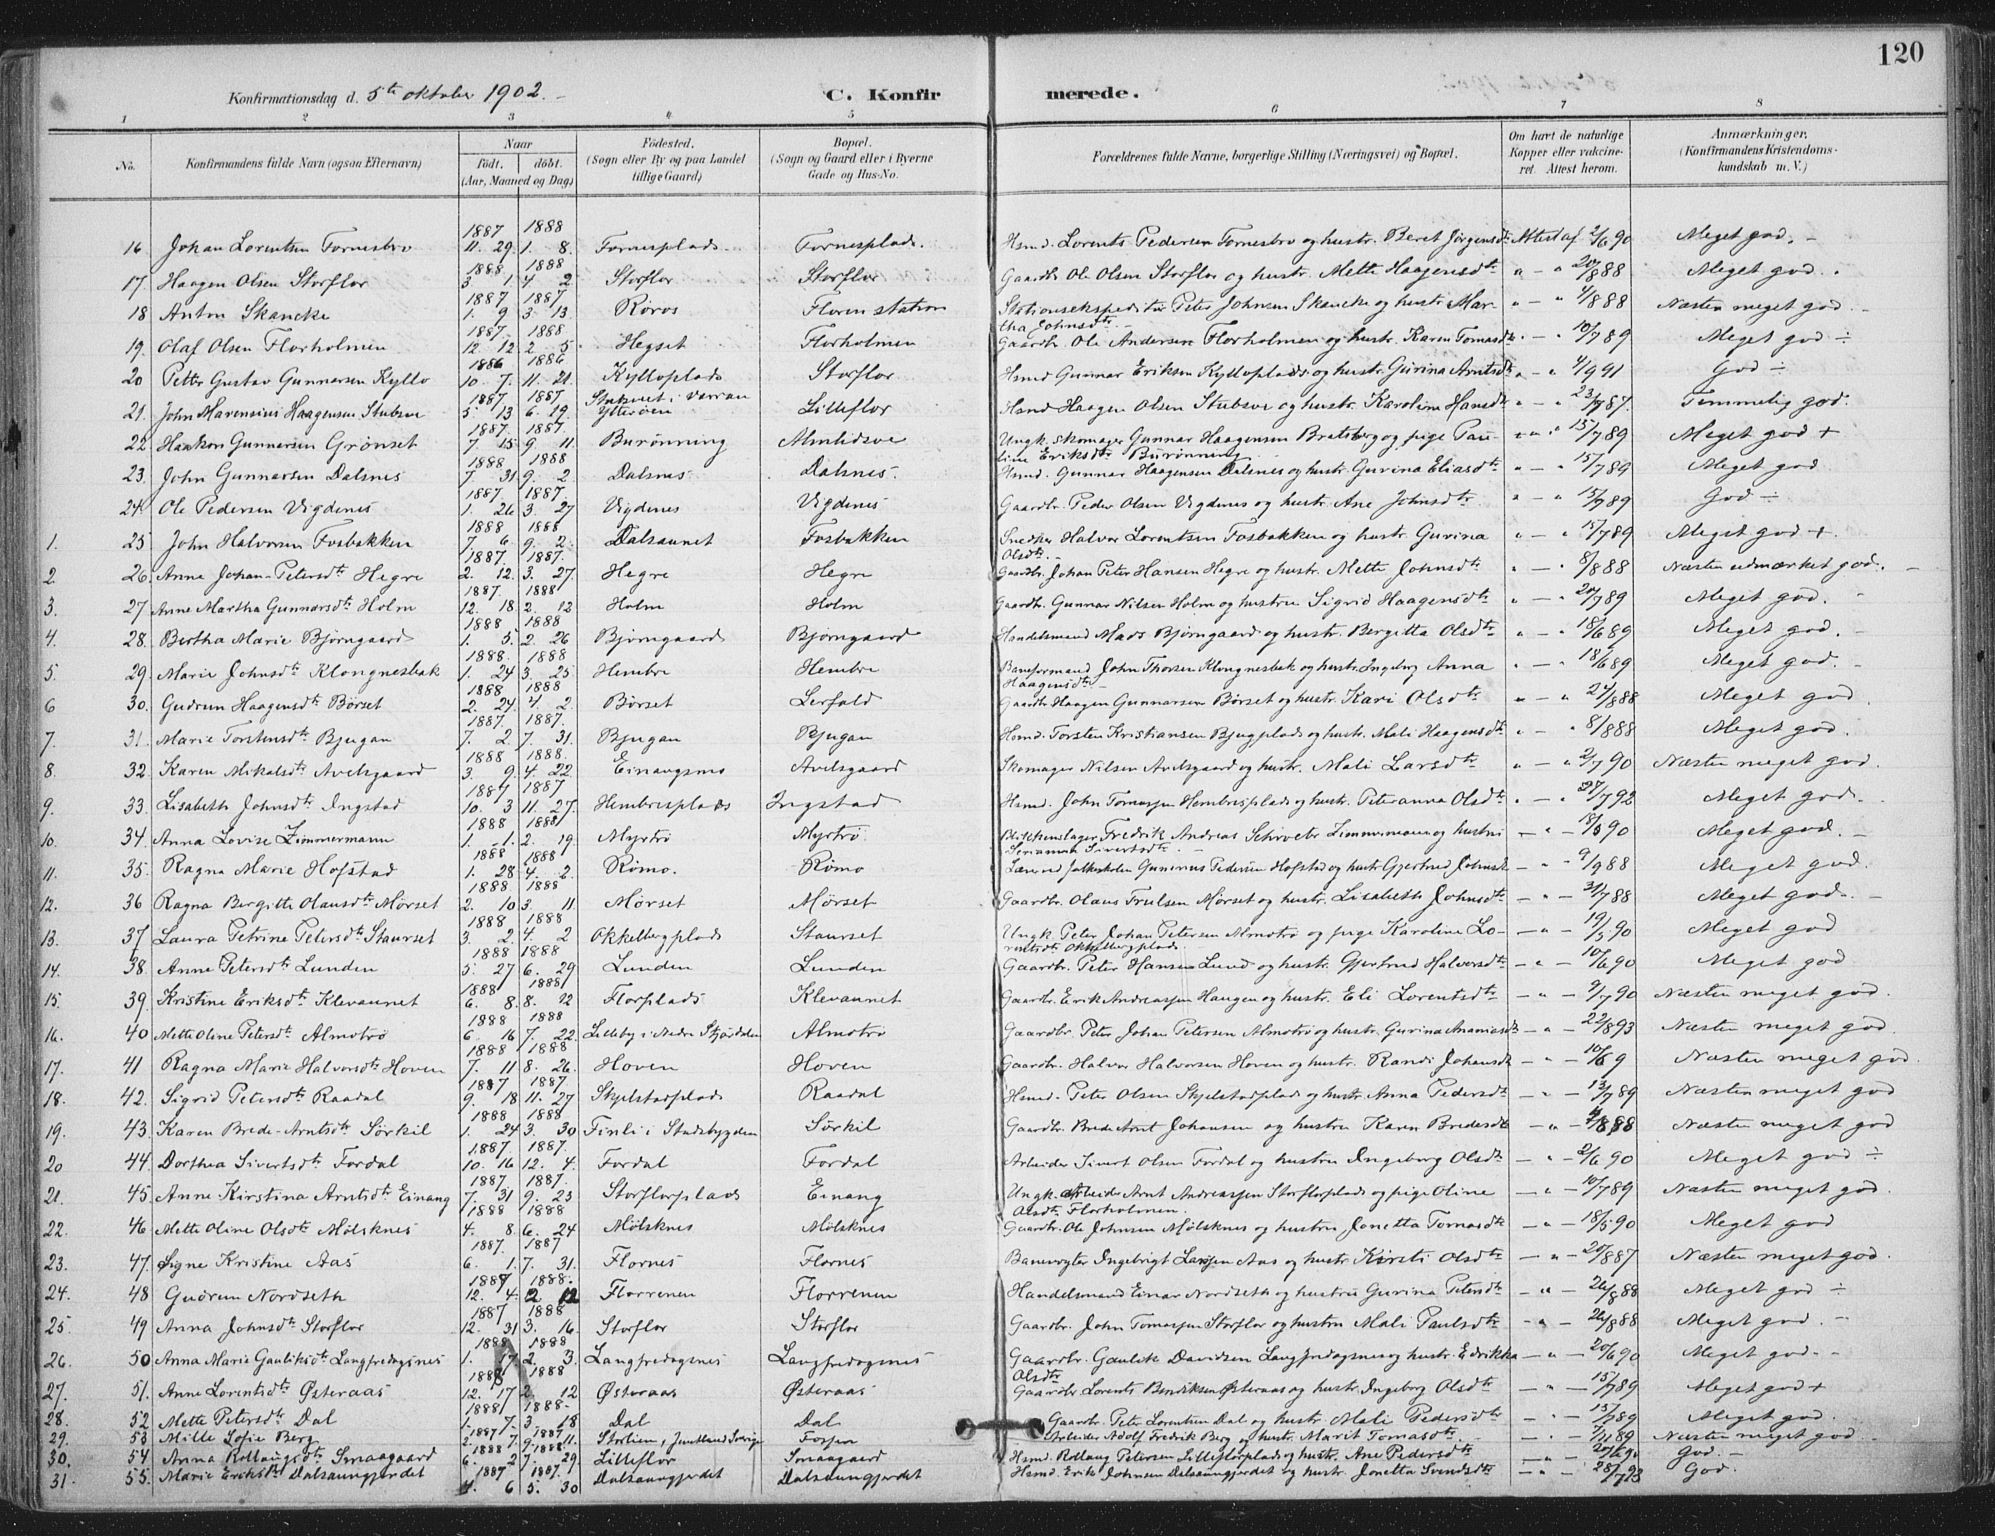 120
Konfirmationsdag d. 5te oktober 1902.
C. Konfirmerede.
1 2 3 4 5 6 7 8
No. Konfirmandens fulde Navn (ogsaa Efternavn) Naar født, døbt. (Aar, Maaned og Dag) Fødested. (Sogn eller By og paa Landet tillige Gaard) Bopæl. (Sogn og Gaard eller i Byerne Gade og Hus-No. Forældrenes fulde Navne, borgerlige Stilling (Næringsvei) og Bopæl. Om havt de naturlige Kopper eller vakcineret. Attest herom. Anmærkninger. (Konfirmandens Kristendomskundskab m. V.)
1887 1888
16 Johan Lorentsen Fornesbro 11. 29 1. 8. Fornesplads Fornesplads. Hsmd. Lorents Pedersen Fornesbro og hustr. Beret Jørgensdtr Attest af 2/6 90 Meget god. -
1888 1888
17. Haagen Olsen Storflor 3. 1. 4. 2 Storflor Storflor Gaardbr Ole Olsen Storflor og hustr. Mette Haagensdtr " - " 20/8 88 Meget god.
1887 1887
18 Anton Skancke 1. 9 3. 13. Røros Floren station Stationsekspeditør Peter Johnsen Skancke og hustr. Mar-
tha Johnsdtr. " - " 4/8 88 Næsten meget god. -
1887. 1888
19. Olaf Olsen Florholmen 12. 12. 2. 5. Hegset Florholmen Gaardbr. Ole Andersen Florholmen og hustr. Karen Tomasdtr " - " 10/7 89 Meget god ÷
1886 1886
20 Petter Gustav Gunnarsen Kyllo 10. 7. 11. 21. Kylloplads Storflor Hsmd Gunnar Eriksen Kylloplads og hustr. Gurina Arntsdtr " - " 4/9 91 God ÷
1887. 1887
21. John Marensius Haagensen Stubsve 5. 13 6. 19. i Værran Ytterøen Lilleflor Hsmd Haagen Olsen Stubsve og hustr. Karoline Hansdtr " - " 87. Temmelig god.
1887. 1887.
22 Haakon Gunnarsen Grønset 7. 15. 9. 11. Burønning Almlidsve Ungk. skomager Gunnar Haagensen Bratsberg og pige Pau-
line Eriksdtr Burønning " " 15/7 89 Meget god +
1888 1888
23. John Gunnarsen Dalsnes 7. 31 9. 2. Dalsnes Dalsnes. Hsmd. Gunnar Haagensen Dalsnes og hustr. Gurina Eliasdtr " - " 15/7 89 Meget god
1887. 1887
24. Ole Pedersen Vigdenes 1. 26 3. 27 Vigdenes Vigdenes Gaardbr. Peder Olsen Vigdenes og hustr. Ane Johnsdtr " - " 15/7 89 God ÷
1888 1888
1. 25 John Halvorsen Fosbakken 7. 6. 9. 2. Dalsaunet Fosbakken Snedker Halvor Lorentsen Fosbakken og hustr. Gurina
Olsdtr. " - " 15/7 89 Meget god +.
1887. 1887.
2. 26. Anne Johan-Petersdtr Hegre 2. 12. 3. 27. Hegre Hegre Gaardbr. Johan Peter Hansen Hegre og hustr. Mette Johnsdtr " - " 8/8 88 Næsten udmærket god. -
1887. 1888
3. 27 Anne Martha Gunnarsdtr Holm 12. 18 2. 12 Holm Holm Gaardbr. Gunnar Nilsen Holm og hustru Sigrid Haagensdtr " - " 20/7 89 Meget god. -
1888 1888
4 28. Bertha Marie Bjørngaard 1. 5. 2. 26 Bjørngaard Bjørngaard Handelsmand Mads Bjørngaard og hustr. Bergitta Olsdtr " - " 18/6 89 Meget god. -
1888. 1888
5. 29. Marie Johnsdtr Klongnesbak 1. 24 3. 25 Hembre Hembre Baneformand John Thorsen Klongnesbak og hustr. Ingeborg Anna
Haagensdtr. " - " 18/6 89 Meget god. -
1888 1888
6 30. Gudrun Haagensdtr Børset 2. 24. 4. 2 Børset Lerfald Gaardbr Haagen Gunnarsen Børset og hustr. Kari Olsdtr " - " 24/8 88 Meget god
1887. 1887.
7. 31. Marie Torstensdtr Bjugan 7. 2. 7. 31. Bjugan Bjugan Hsmd. Torsten Kristiansen Bjugplads og hustr. Mali Haagensdtr " - " 8/8 88 Meget god.
1888 1888.
8. 32. Karen Mikalsdtr Avelsgaard 3. 9. 4. 22. Einangsmo Avelsgaard Skomager Nilsen Avelsgaard og hustr. Mali Larsdtr " - " 2/7 90 Næsten meget god.
1887 1887
9. 33 Lisabeth Johnsdtr Ingstad 10. 3 11. 27. Hembresplads Ingstad Hsmd. John Tomassen Hembresplads og hustr. Peteranna Olsdtr " - " 27/7 92 Meget god. -
1888 1888
10. 34. Anna Lovise Zimmermann 1. 1. 2. 19 Myrtrø Myrtrø Blikkenslager Fredrik Andreas Zimmermann og hustru
Sivertsdtr. - " - 90 Meget god. -
1888 1888
11. 35. Ragna Marie Hofstad 1. 28 4. 2. Rømo. Rømo Lærer ved folkeskolen Gunerius Pedersen Hofstad og hustr. Gjertrud Johnsdtr - " - 9/9 88 Meget god.
1888 1888
12. 36 Ragna Bergitte Olausdtr Mørset 2. 10 3. 11 Mørset Mørset Gaardbr. Olaus Trulsen Mørset og hustr. Lisabeth Johnsdtr - " - 31/7 88 Meget god. -
1888 1888
13. 37 Laura Petrine Petersdtr Staurset 3. 2. 4. 2 Okkelbergplads Staurset Ungk. Peter Johan Petersen Almotrø og pige Karoline Lo-
rentsdtr Okkelbergplads. - " - 19/5 90 Meget god
1888 1888
14. 38. Anne Petersdtr Lunden 5. 27 6. 29 Lunden Lunden Gaardbr. Peter Hansen Lund og hustr. Gjertrud Halvorsdtr - " - 10/6 90 Meget god
1888 1888
15 39. Kristine Eriksdtr Klevaunet 6. 8. 8. 12 Florplads Klevaunet Gaardbr. Erik Andreassen Haugen og hustr. Eli Lorentsdtr - " - 9/7 90 Næsten meget god.
1888 1888
16. 40 Mette Oline Petersdtr Almotrø 6. 16 7. 22. Lilleby i Nedre Stjørdalen Almotrø Gaardbr. Peter Johan Petersen Almotrø og hustr. Gurina Ananiasdtr - " - 22/8 93 Næsten meget god
1888 1888
17. 41 Ragna Marie Halvorsdtr Hoven 7. 11 8. 26. Hoven Hoven Gaardbr. Halvor Halvorsen Hoven og hustr. Randi Johansdtr - " - 10/6 9 Næsten meget god.
1887 1887.
18. 42. Sigrid Petersdtr Raadal 9. 18 11. 27 Skjelstadplads Raadal Hsmd. Peter Olsen Skjelstadplads og hustr. Anna Pedersdtr - " - 13/7 89 Næsten meget god
1888 1888
19. 43 Karen Brede-Arntsdtr Sørkil 1. 24 3. 30 Tinli i Stadsbygden Sørkil Gaardbr. Brede Arnt Johansen og hustru Karen Bredesdtr - " - 4/8 88 Næsten meget god
1887 1887.
20 44. Dorthea Sivertsdtr Fordal 10. 16 12. 4. Fordal Fordal Arbeider Sivert Olsen Fordal og hustru Ingeborg Olsdtr - " - 2/6 90 Meget god ÷
1887 1887.
21. 45. Anne Kirstina Arntsdtr Einang 7. 31 9. 23 Storflorplads Einang Ungk. Arbeider Arnt Andreassen Storflorplads og pige Oline
Olsdtr Florholmen. - " - 10/7 89 Næsten meget god.
1888 1888
22. 46. Mette Oline Olsdtr Mølsknes 4. 8. 6. 24 Mølsknes Mølsknes Gaardbr. Ole Johnsen Mølsknes og hustru Jonetta Tomasdtr - " - 18/5 90 Meget god
1887. 1887
23. 47. Signe Kristine Aas 6. 1. 7. 31. Flornes Flornes Banevogter Ingebrigt Larsen Aas og hustr. Kirsti Olsdtr - " - 20/8 87 Næsten meget god.
1887 1888.
24. 48 Gudrun Nordseth 12. 4. 2 12 Florrenen Florrenen Handelsmand Einar Nordseth og hustru Gurina Petersdtr - " - 26/8 88 Meget god ÷
1887 1888
25 49 Anna Johnsdtr Storflor 12. 31 3. 16. Storflor Storflor Gaardbr. John Tomassen Storflor og hustru Mali Paulsdtr - " - 26/8 88 Meget god. -
1888 1888
26. 50 Anna Marie Gauliksdtr Langfredagsnes 1. 17 2. 3. Langfredagsnes Langfredagsnes Gaardbr. Gaulik Davidsen Langfredagsnes og hustr. Edrikka
Olsdtr - " - 20/6 90 Meget god. -
1888 1888
27. 51. Anne Lorentsdtr Østeraas 12. 17 2. 12 Østeraas Østeraas Gaardbr Lorents Bendiksen Østeraas og hustr. Ingeborg Olsdtr - " - 15/7 89 Meget god +
1888 1888.
28. 52 Mette Petersdtr Dal 1. 7. 3. 18 Dal Dal Gaardbr. Peter Lorentsen Dal og hustr. Mali Pedersdtr - " - 15/7 89 Meget god.
1887 1887
29. 53 Mille Sofie Berg 2. 7. 9. 11. Storlien, Jemtland Sverige Forsen Arbeider Adolf Fredrik Berg og hustr. Marit Tomasdtr. - " - 7/11 89 Næsten meget god.
1888 1888
30. 54 Anna Rollaugsdtr Smaagaard 6. 2 7. 29 Lilleflor Smaagaard Hsmd. Rollaug Petersen Lilleflorplads og hustr. Ane Pedersdtr - " - 20/6 90 God. -
1887 1887.
31. 55. Marie Eriksdtr Dalsaungjerdet 4. 6 5. 30 Dalsaungjerdet Dalsaungjerdet Hsmd. Erik Johnsen Dalsaungjerdet og hustr. Jonetta Svendsdtr - " - 28/7 93 God.